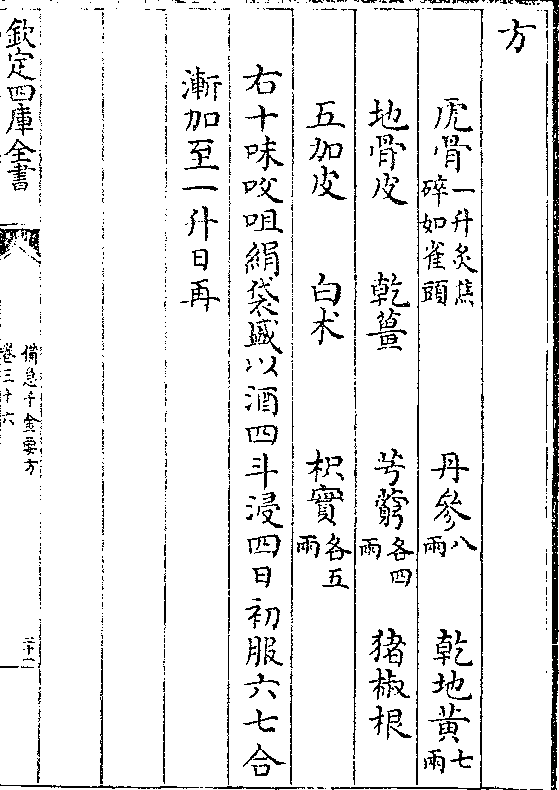 方
虎骨一升炙焦碎如雀頭 丹參八兩 乾地黃七兩
地骨皮 乾薑 芎藭各四兩 猪椒根
五加皮 白术 枳實各五兩
右十味㕮咀絹袋盛以酒四斗浸四日初服六七合
漸加至一升日再
欽定四庫全書
備急千金要方
卷三十六